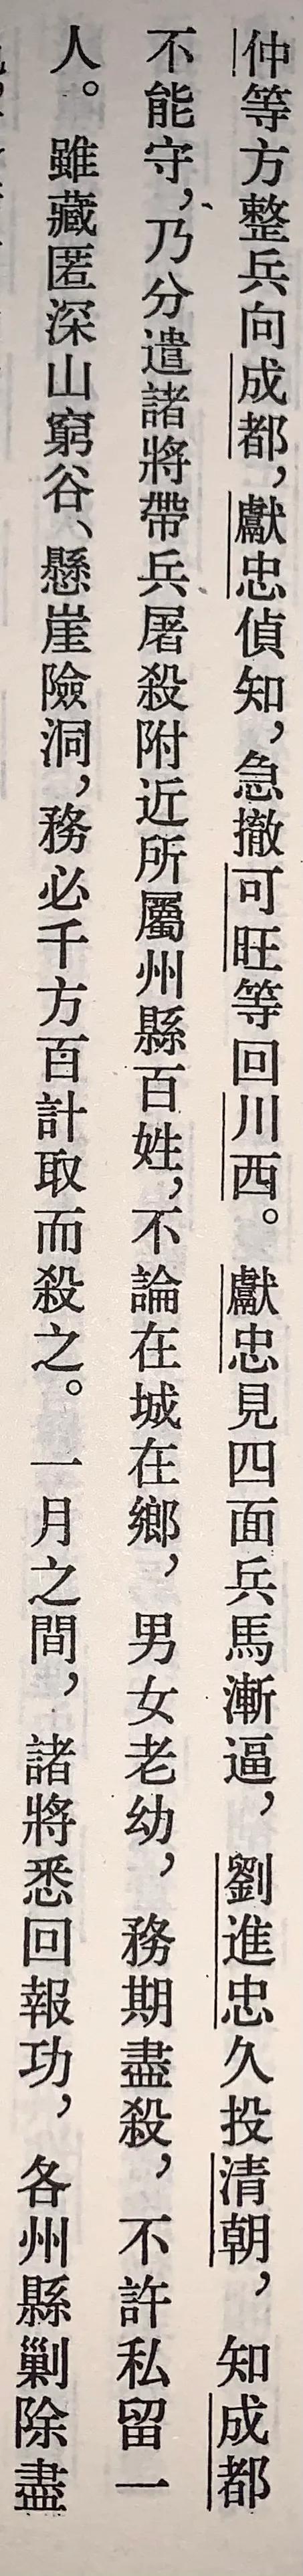 仲等方整兵向成都，獻忠偵知，急撤可旺等回川西。獻忠見四面兵馬漸逼，劉進忠久投清朝，知成都
不能守，乃分遣諸將帶兵屠殺附近所屬州縣百姓，不論在城在鄉，男女老幼，務期盡殺，不許私留一
人。雖藏匿深山窮谷、懸崖險洞，務必千方百計取而殺之。一月之間，諸將悉回報功，各州縣剿除盡